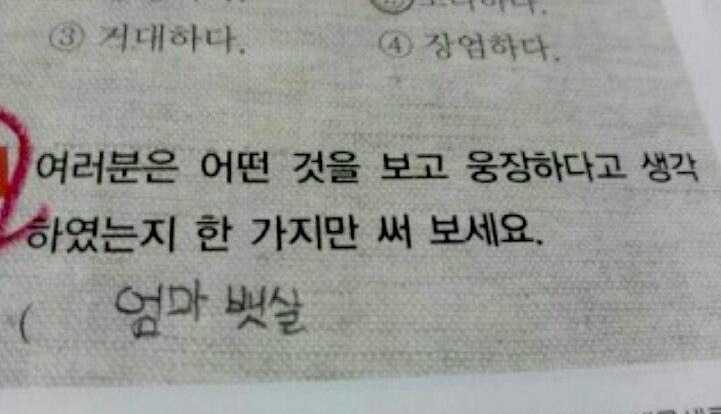 ③ 거대하다. ④ 장엄하다.
여러분은 어떤 것을 보고 웅장하다고 생각
하였는지 한 가지만 써 보세요.
( 엄마 뱃살